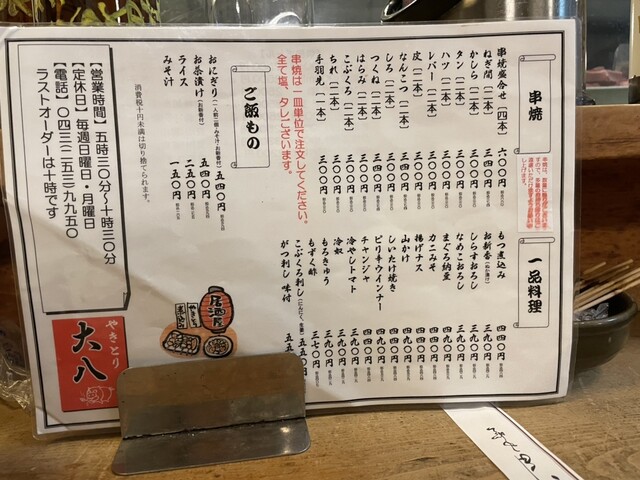 串焼
串焼盛合せ(四本) 六〇〇円
ねぎ間(二本) 三〇〇円
かしら(二本) 三〇〇円
タン(二本) 三〇〇円
ハツ(二本) 三〇〇円
レバー(二本) 三〇〇円
皮(二本) 三〇〇円
なんこつ(二本) 三〇〇円
しろ(二本) 三〇〇円
つくね(二本) 三四〇円
はらみ(二本) 三四〇円
こぶくろ(二本) 三〇〇円
ちれ(二本) 三〇〇円
手羽先(一本) 三〇〇円
串焼は一皿単位で注文してください。
全て塩、タレございます。
一品料理
もつ煮込み 四四〇円
お新香(ぬか漬け) 三九〇円
しらすおろし 三九〇円
なめこおろし 三九〇円
まぐろ納豆
カニみそ
揚げナス 四四〇円
山かけ
しいたけ焼き
ピリ辛ウインナー 四四〇円
チャンジャ
冷やしトマト 三九〇円
冷奴
もろきゅう 三九〇円
もずく酢 三七〇円
こぶくろ刺し(にんにく、生姜)
がつ刺し 味付
ご飯もの
おにぎり(一人前二個・みそ汁・お新香付) 五四〇円
お茶漬け(お新香付) 五四〇円
ライス 二五〇円
みそ汁 一五〇円
消費税十円未満は切り捨てられます。
【営業時間】五時三〇分〜十時三〇分
【定休日】毎週日曜日・月曜日
【電話】〇四三(二五三)九九五〇
ラストオーダーは十時です
居酒屋
やきとり
大八